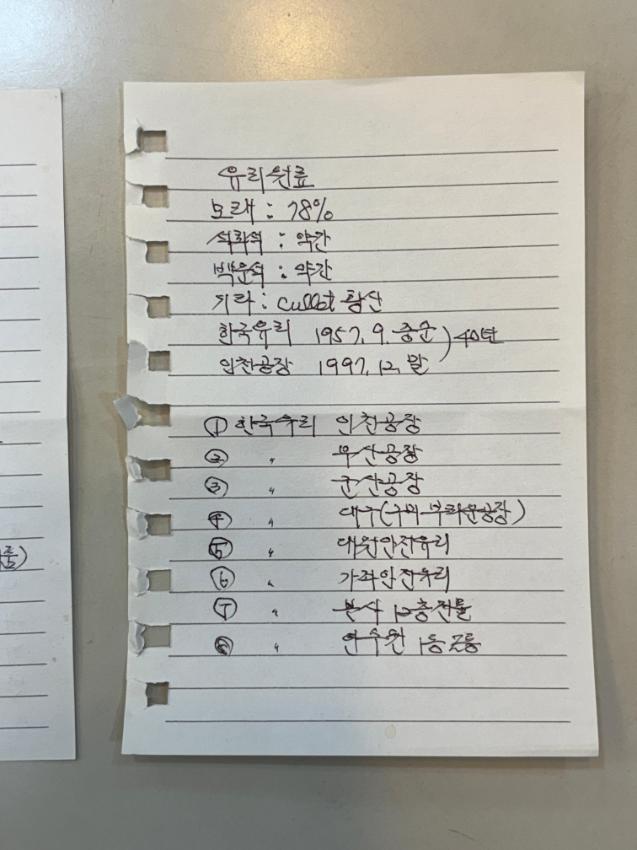 유리원료
모래 : 78%
석회석 : 약간
백운석 : 약간
기타 : Cullet 황산
한국유리 1957. 9. 중순
인천공장 1997. 12. 말 ) 40년
① 한국유리 인천공장
② 〃 부산공장
③ 〃 군산공장
④ 〃 대구(구미 부라운공장)
⑤ 〃 대원안전유리
⑥ 〃 가좌안전유리
⑦ 〃 본사 12층건물
⑧ 〃 연수원 1동 2동